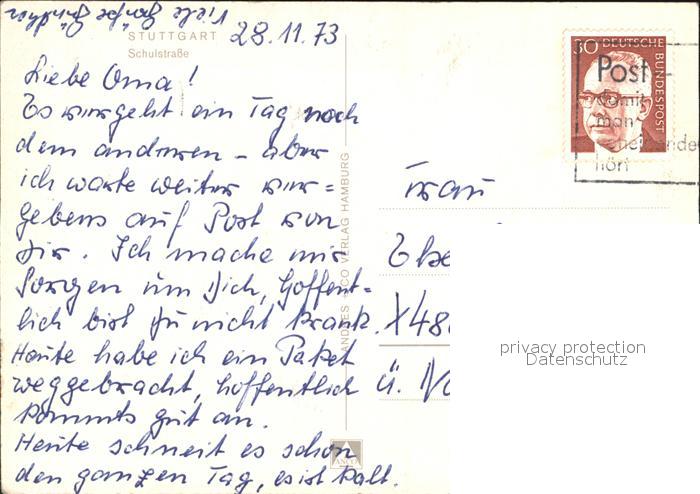 STUTTGART
Schulstraße
28.11.73
Liebe Oma!
Es vergeht ein Tag nach
dem anderen - aber
ich warte weiter ver=
gebens auf Post von
Dir. Ich mache mir
Sorgen um Dich, hoffent=
lich bist Du nicht krank.
Heute habe ich ein Paket
weggebracht, hoffentlich
kommts gut an.
Heute schneit es schon
den ganzen Tag, es ist kalt.
Viele
ANDRES + CO VERLAG HAMBURG
ANCO
30 DEUTSCHE
BUNDESPOST
Post
damit
man
hört
Frau
X48
ü.
privacy protection
Datenschutz